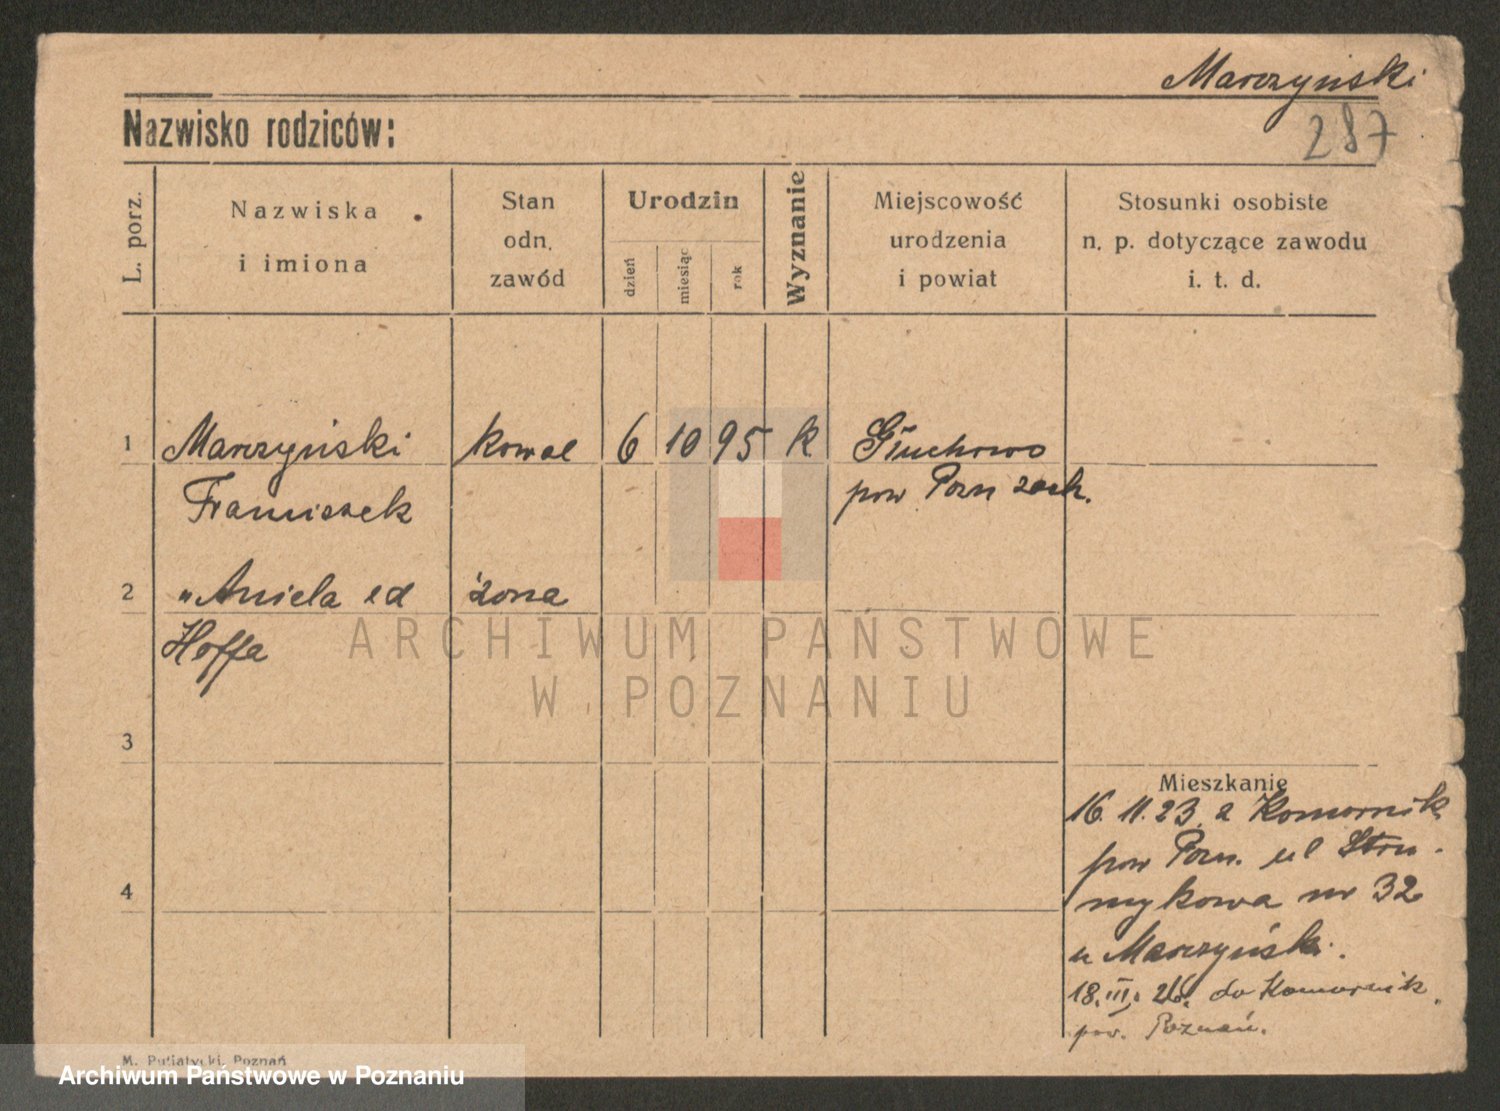 Marczyński
287
Nazwisko rodziców:
L. porz.
Nazwiska
i imiona
Stan
odn.
zawód
Urodzin
dzień
miesiąc
rok
Wyznanie
Miejscowość
urodzenia
i powiat
Stosunki osobiste
n. p. dotyczące zawodu
i. t. d.
1 Marczyński kowal 6 10 95 k. Głuchowo
Franciszek pow Pozn zach.
2 „ Aniela żona
Hoffa
3
4
Mieszkanie
16. 11. 23. z Komornik
pow Pozn. ul Stru-
mykowa nr 32
u Marczyńsk.
18. III. 26. do Komornik.
pow. Poznań.
M. Putiatycki, Poznań
ARCHIWUM PAŃSTWOWE
W POZNANIU
Archiwum Państwowe w Poznaniu